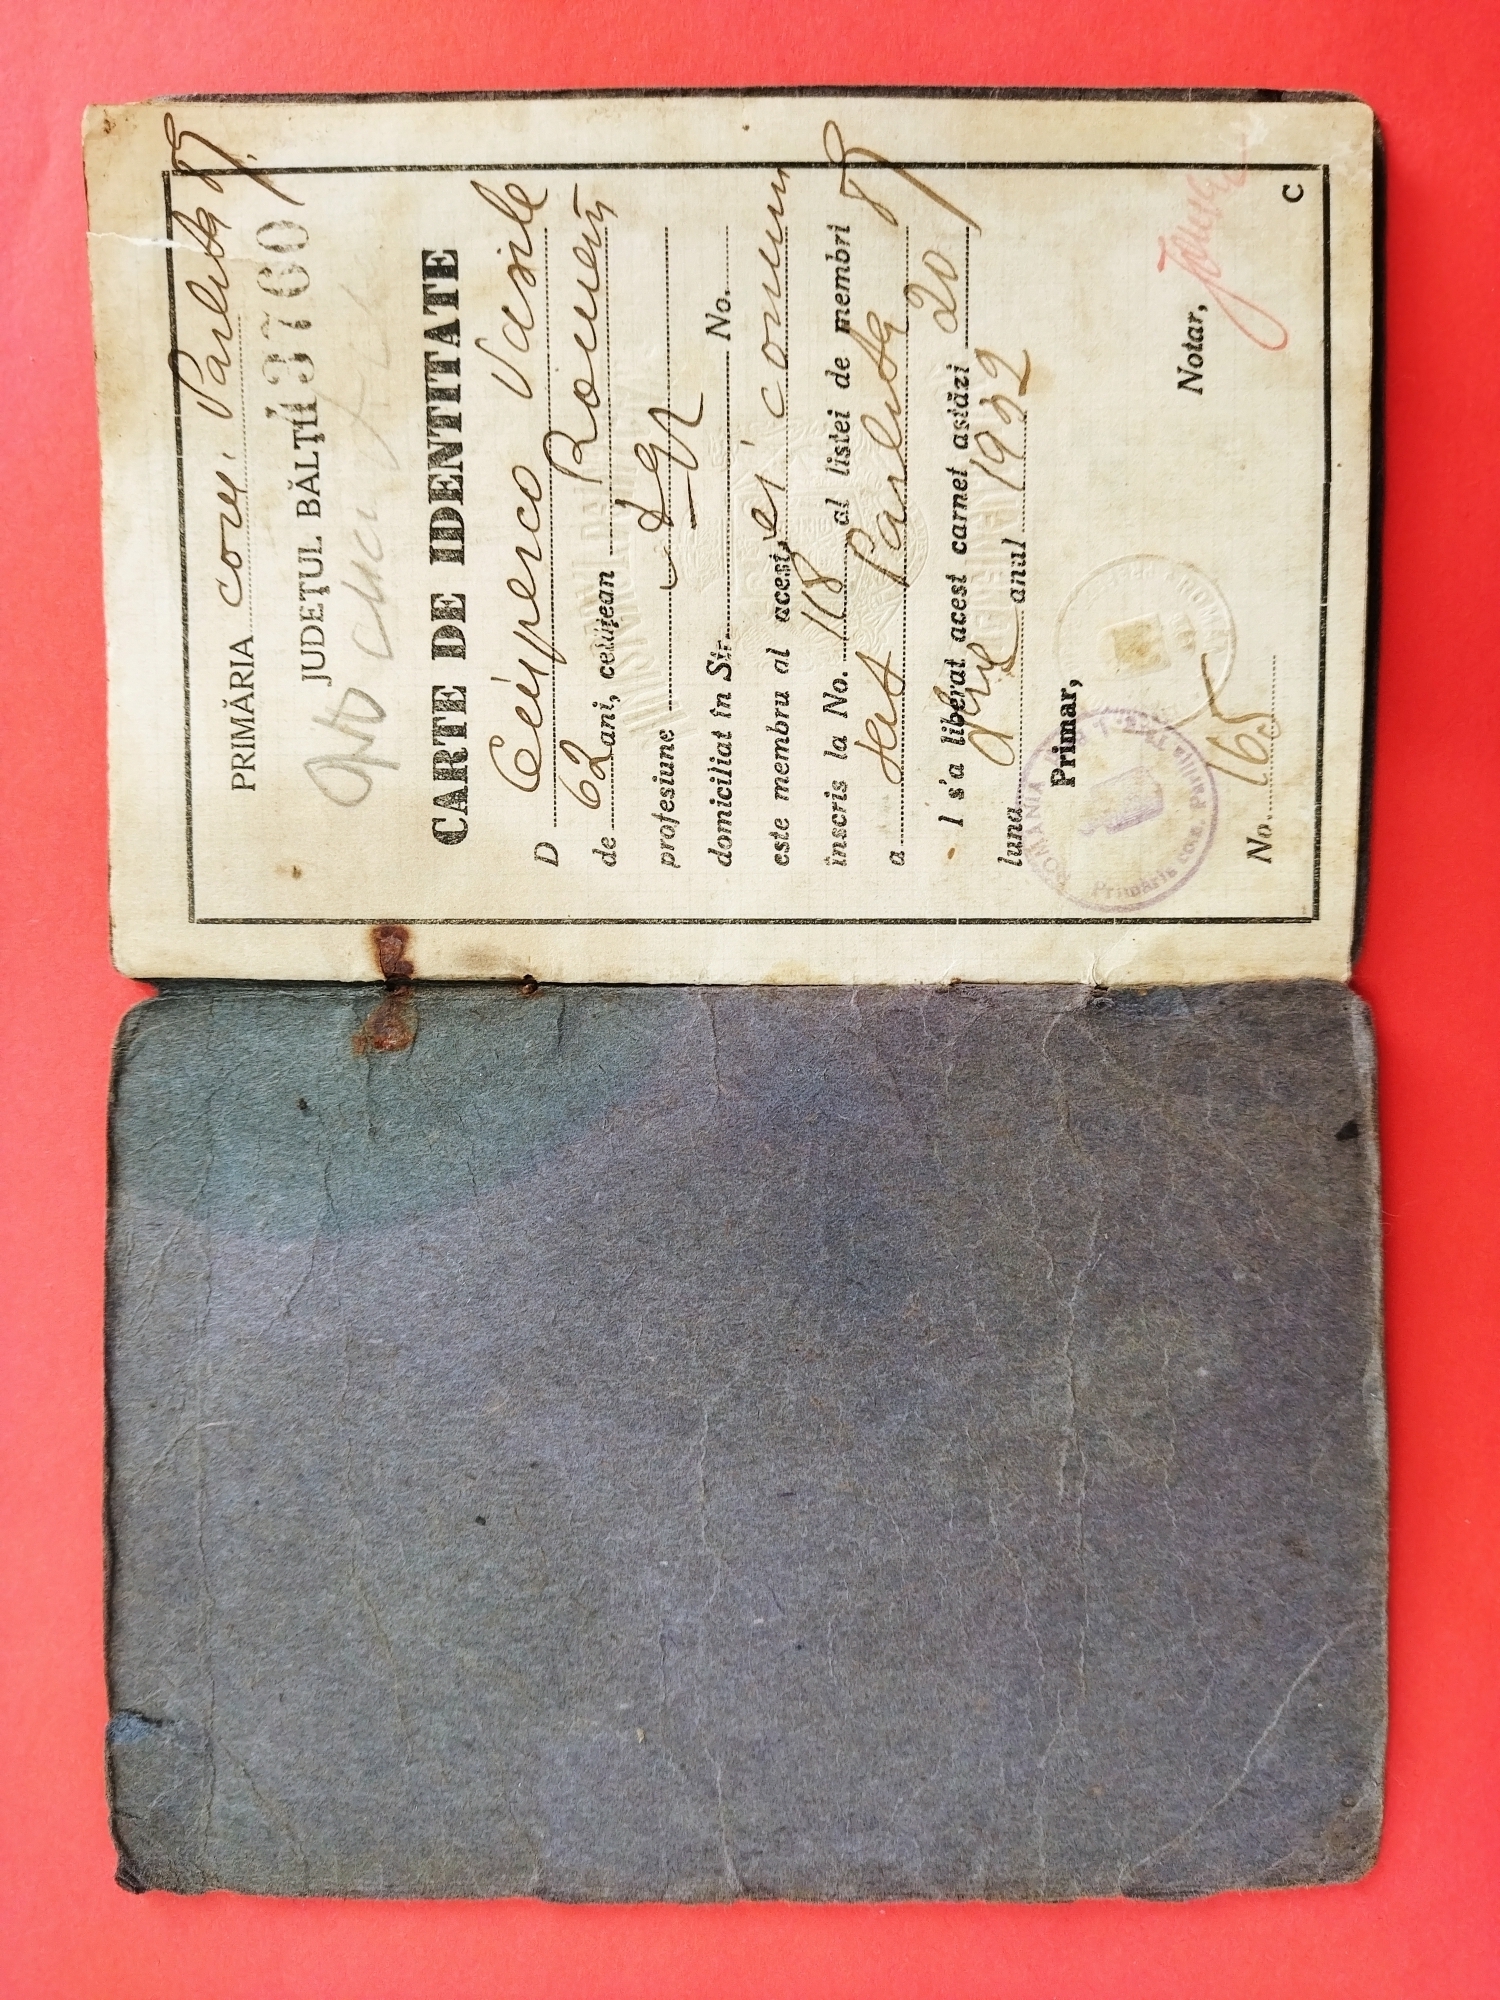 PRIMĂRIA com. Parlita
JUDEŢUL BĂLŢII 13760
CARTE DE IDENTITATE
D Ciuperco Vasile
de 62 ani, cetăţean Român
profesiune
domiciliat în Str. No.
este membru al acestei comun
înscris la No. 118 al listei de membri
a sat Parlita
I s'a liberat acest carnet astăzi 20
luna anul 1932
Primar,
Notar,
ROMÂNIA
Primăria com. Parlita
No. 165
C